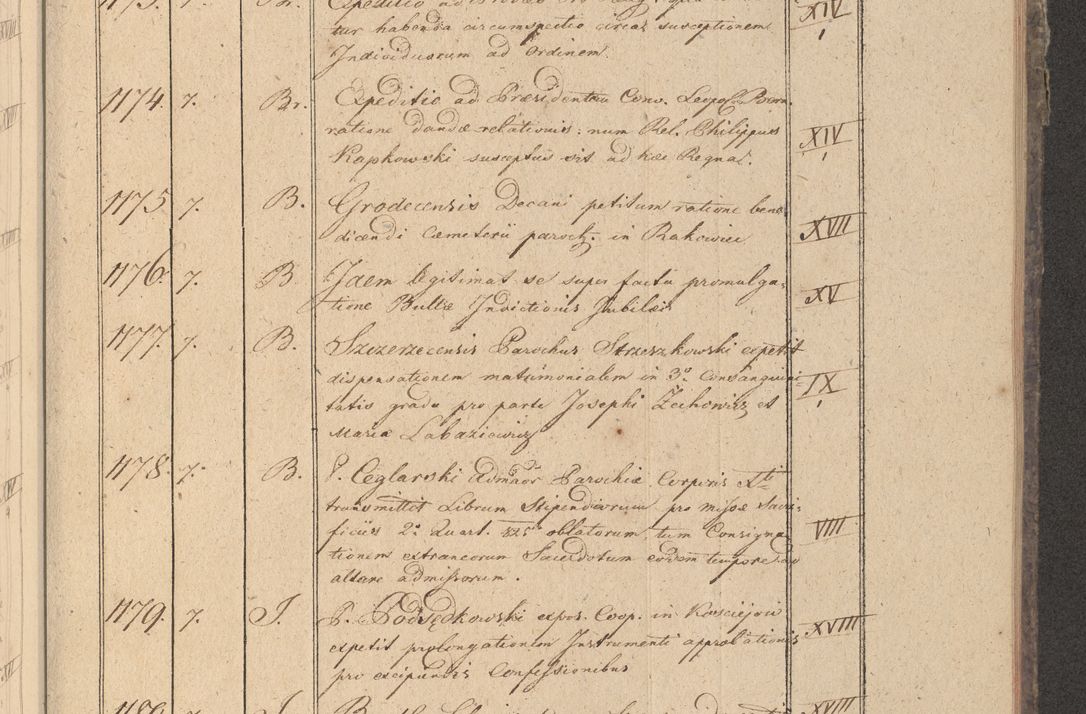 tur habenda circumspectio circa susceptionem XIV
Individuorum ad Ordinem 1
1174. 7. Br. Expeditio ad Præsidentem Conv. Leopol. Bern
ratione dandæ relationis: num Rel. Philippus XIV
Kapkowski susceptus sit ad hæc Regna. 1
1175 7. B. Grodecensis Decani petitum ratione bene-
dicendi Cæmeterii paroch. in Rakowiec XVII
1176. 7. B Idem legitimat se super facta promulga-
tione Bullæ Indictionis Jubilæi XV
1177. 7. B. Szczerzecensis Parochus Strzeszkowski expetit
dispensationem matrimonialem in 3º Consanguini IX
tatis gradu pro parte Josephi Zechowicz et 1
Maria Labaziewicz
1178. 7. B. P. Ceglarski Admaor Parochiæ Corporis Xti
transmittit Librum Stipendiorum pro missæ Sacri-
ficiis 2º Quart. 825 oblatorum tum Consigna VIII
tionem extraneorum Sacerdotum eodem tempore ad
altare admissorum.
1179. 7. J. P. Podsędkowski expos. Coop. in Kosciejow XVIII
expetit prolongationem Instrumenti approbationis
pro excipiendis Confessionibus
7. J. XVIII